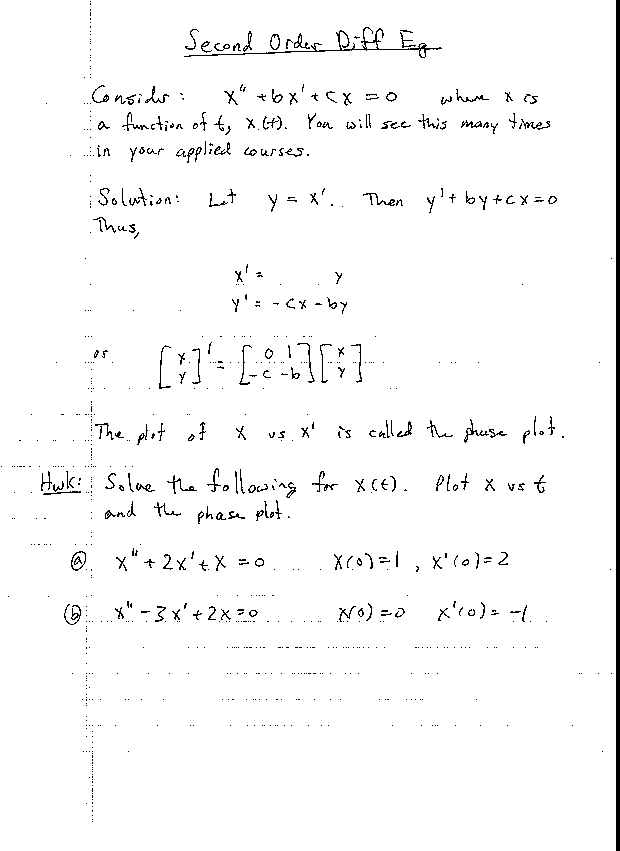 Second Order Diff Eq
Consider: x" + bx' + cx = 0 where x is
a function of t, x(t). You will see this many times
in your applied courses.
Solution: Let y = x'. Then y' + by + cx = 0
Thus,
x' = y
y' = -cx - by
or [x y]' = [0 1 -c -b] [x y]
The plot of x vs x' is called the phase plot.
Hwk: Solve the following for x(t). Plot x vs t
and the phase plot.
(a) x" + 2x' + x = 0 x(0) = 1, x'(0) = 2
(b) x" - 3x' + 2x = 0 x(0) = 0 x'(0) = -1